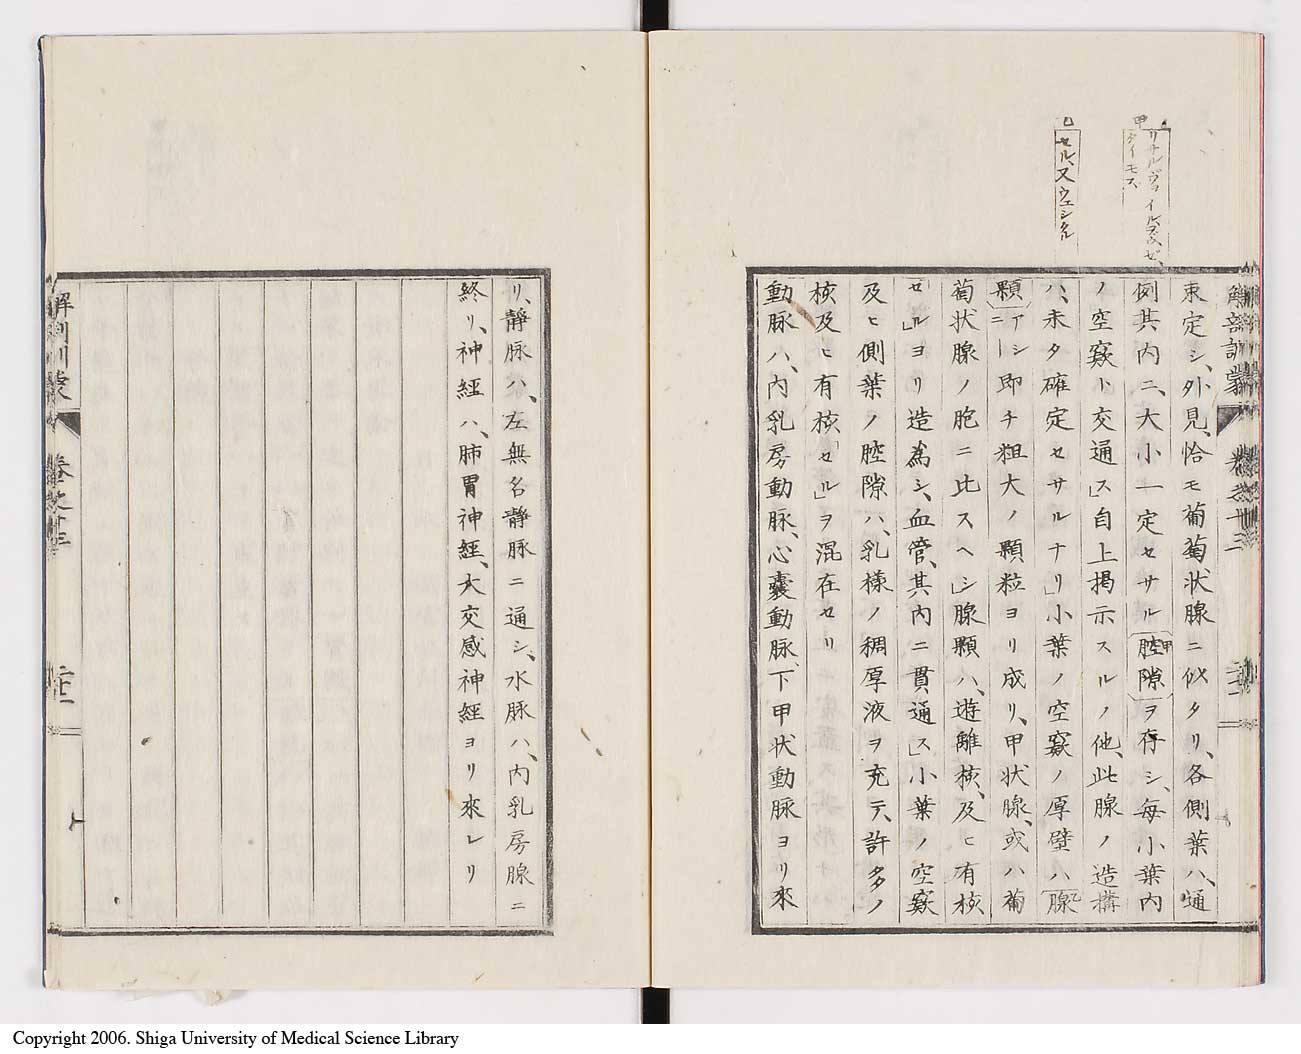 甲
リサルヴヲイルズウゼ、
タイモス
乙
セル、又ウェシクル
解剖訓蒙
卷之十三
束定シ、外見、恰モ葡萄状腺ニ似タリ、各側葉ハ、通
例其内ニ、大小一定セサル腔隙ヲ存シ、毎小葉内
ノ空竅ト交通ス」自上掲示スルノ他、此腺ノ造搆
ハ、未タ確定セサルナリ」小葉ノ空竅ノ厚壁ハ腺
顆ニアシ即チ粗大ノ顆粒ヨリ成リ、甲状腺、或ハ葡
萄状腺ノ胞ニ比スヘシ」腺顆ハ、遊離核、及ヒ有核
「セル」ヨリ造為シ、血管、其内ニ貫通ス」小葉ノ空竅
及ヒ側葉ノ腔隙ハ、乳様ノ稠厚液ヲ充テ、許多ノ
核及ヒ有核「セル」ヲ混在セリ
動脉ハ、内乳房動脉、心嚢動脉、下甲状動脉ヨリ來
リ、靜脉ハ、左無名靜脉ニ通シ、水脉ハ、内乳房腺ニ
終リ、神經ハ、肺胃神經、大交感神經ヨリ來レリ
解剖訓蒙
卷之十三
Copyright 2006. Shiga University of Medical Science Library